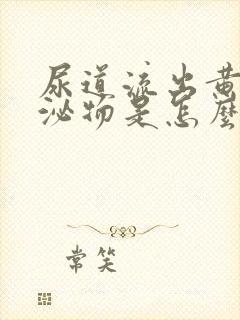 尿道流出黄
泌物是怎麼
常笑